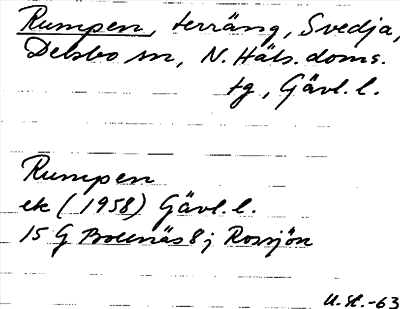 Rumpen, terräng, Svedja,
Delsbo sn, N. Häls. doms.
tg, Gävl. l.
Rumpen
ek (1958) Gävl. l.
15 G 8j Rossjön
U.H.-63